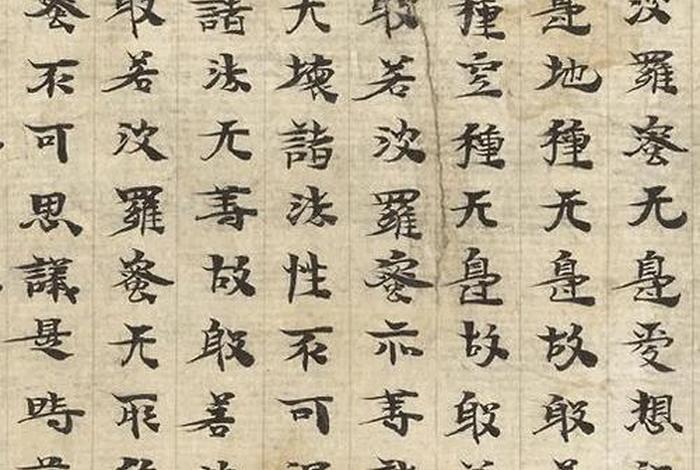 波羅蜜无邊受想
邊地種无邊故般
種空種无邊故般
般若波羅蜜亦等
无壞諸法性不可
諸法无等故般若
般若波羅蜜无所
蜜不可思議是時